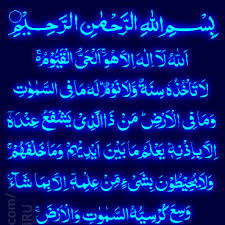 بِسْمِ اللهِ الرَّحْمٰنِ الرَّحِيْمِ
اَللهُ لَآ اِلٰهَ اِلَّا هُوَ الْحَيُّ الْقَيُّوْمُ
لَا تَاْخُذُهٗ سِنَةٌ وَّلَا نَوْمٌ لَهٗ مَا فِى السَّمٰوٰتِ
وَمَا فِى الْاَرْضِ مَنْ ذَا الَّذِيْ يَشْفَعُ عِنْدَهٗٓ
اِلَّا بِاِذْنِهٖ يَعْلَمُ مَا بَيْنَ اَيْدِيْهِمْ وَمَا خَلْفَهُمْ
وَلَا يُحِيْطُوْنَ بِشَيْءٍ مِّنْ عِلْمِهٖٓ اِلَّا بِمَا شَآءَ
وَسِعَ كُرْسِيُّهُ السَّمٰوٰتِ وَالْاَرْضَ